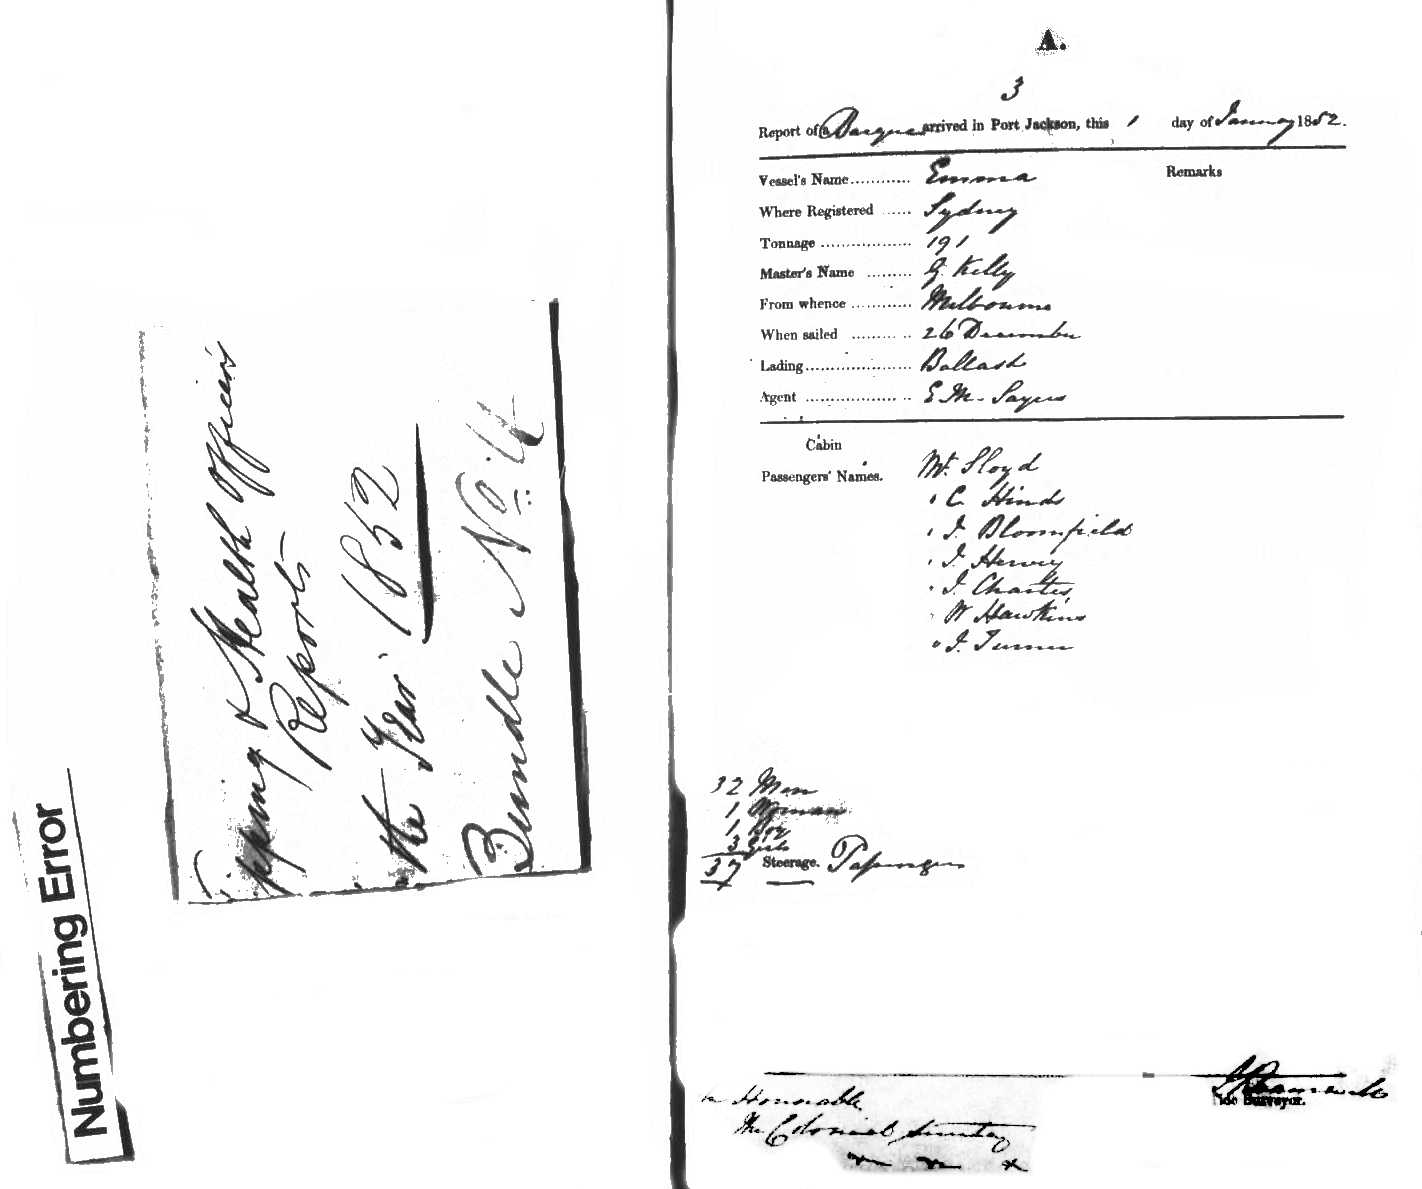 Numbering Error
Shipping & Health Officers
Reports
the Year 1852
Bundle No. 4
A.
3
Report of a Barque arrived in Port Jackson, this 1 day of January 1852.
Vessel's Name ............ Emma
Remarks
Where Registered ...... Sydney
Tonnage .................. 191
Master's Name ......... G. Kelly
From whence ............ Melbourne
When sailed ............ 26 December
Lading..................... Ballast
Agent ..................... E M Sayers
Cabin
Passengers' Names.
Mr. Lloyd
" C. Hinds
" J. Bloomfield
" J. Hervey
" J. Charters
" W Hawkins
" J. Turner
32 Men
1 Woman
1 Boy
3 Girls
37 Steerage. Passengers
Tide Surveyor.
Honorable
The Colonial Secretary